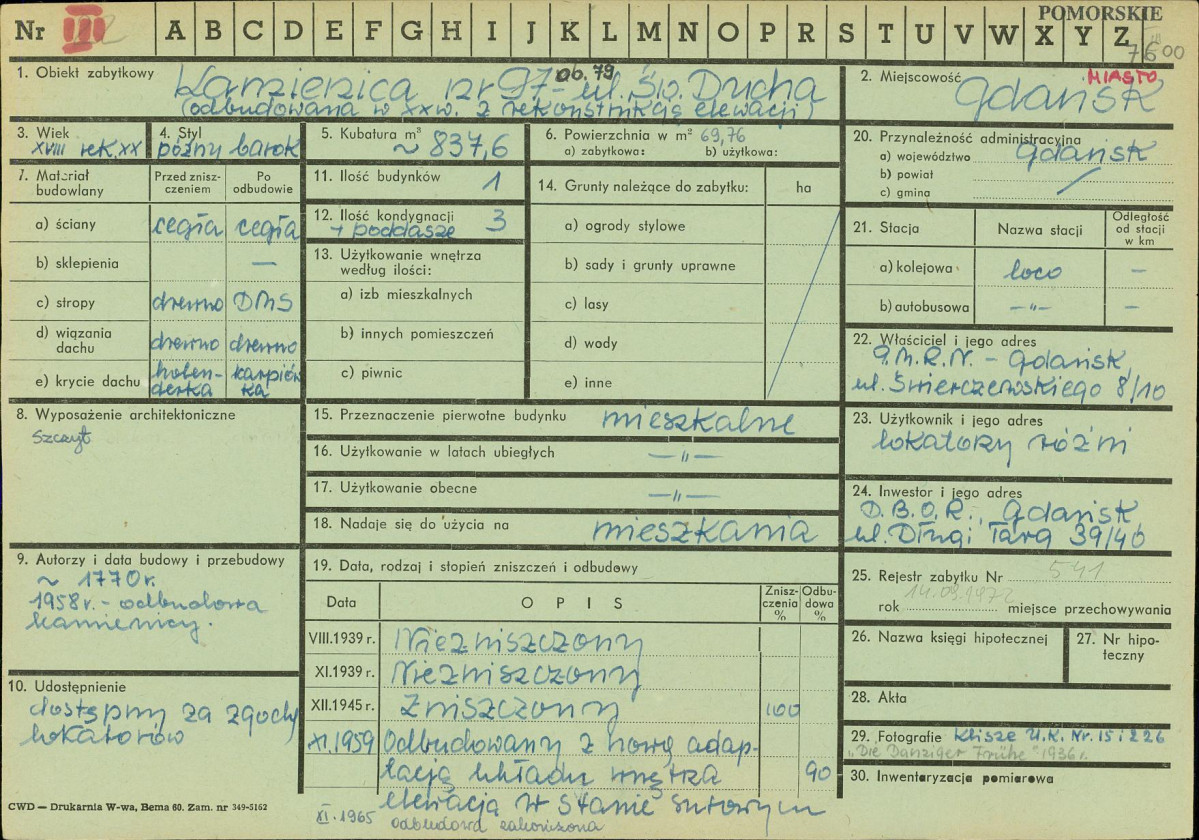 POMORSKIE
Nr III A B C D E F G H I J K L M N O P R S T U V W X Y Z
7600
1. Obiekt zabytkowy Kamienica nr 97 - ul. Św. Ducha
ob. 79
(odbudowana w XX w. z rekonstrukcją elewacji)
2. Miejscowość Gdańsk
MIASTO
3. Wiek
XVIII rek. XX
4. Styl
późny barok
5. Kubatura m³
~ 837,6
6. Powierzchnia w m² 69,76
a) zabytkowa: b) użytkowa:
7. Materiał budowlany
Przed zniszczeniem
Po odbudowie
a) ściany cegła cegła
b) sklepienia —
c) stropy drewno DMS
d) wiązania dachu drewno drewno
e) krycie dachu holenderka karpiówka
8. Wyposażenie architektoniczne
Szczyt
9. Autorzy i data budowy i przebudowy
~ 1770 r.
1958 r. - odbudowa
kamienicy.
10. Udostępnienie
dostępny za zgodą
lokatorów
11. Ilość budynków 1
12. Ilość kondygnacji 3
+ poddasze
13. Użytkowanie wnętrza
według ilości:
a) izb mieszkalnych
b) innych pomieszczeń
c) piwnic
14. Grunty należące do zabytku: ha
a) ogrody stylowe
b) sady i grunty uprawne
c) lasy
d) wody
e) inne
15. Przeznaczenie pierwotne budynku mieszkalne
16. Użytkowanie w latach ubiegłych —"—
17. Użytkowanie obecne —"—
18. Nadaje się do użycia na mieszkania
19. Data, rodzaj i stopień zniszczeń i odbudowy
Data O P I S Zniszczenia % Odbudowa %
VIII.1939 r. Niezniszczony
XI.1939 r. Niezniszczony
XII.1945 r. Zniszczony 100
XI.1959 Odbudowany z nową adap-
tacją układu wnętrza 90
elewacją w stanie surowym
XI.1965 odbudowa zakończona
20. Przynależność administracyjna
a) województwo Gdańsk
b) powiat
c) gmina
21. Stacja Nazwa stacji Odległość od stacji w km
a) kolejowa loco —
b) autobusowa —"— —
22. Właściciel i jego adres
P.M.R.N. - Gdańsk,
ul. Świerczewskiego 8/10
23. Użytkownik i jego adres
lokatorzy różni
24. Inwestor i jego adres
D.B.O.R., Gdańsk,
ul. Długi Targ 39/40
25. Rejestr zabytku Nr 541
14.09.1972
rok miejsce przechowywania
26. Nazwa księgi hipotecznej
27. Nr hipo-
teczny
28. Akta
29. Fotografie Klisze U.K. Nr. 15 i 226
„Die Danziger Frühe" 1936 r.
30. Inwentaryzacja pomiarowa
CWD — Drukarnia W-wa, Bema 60. Zam. nr 349-5162